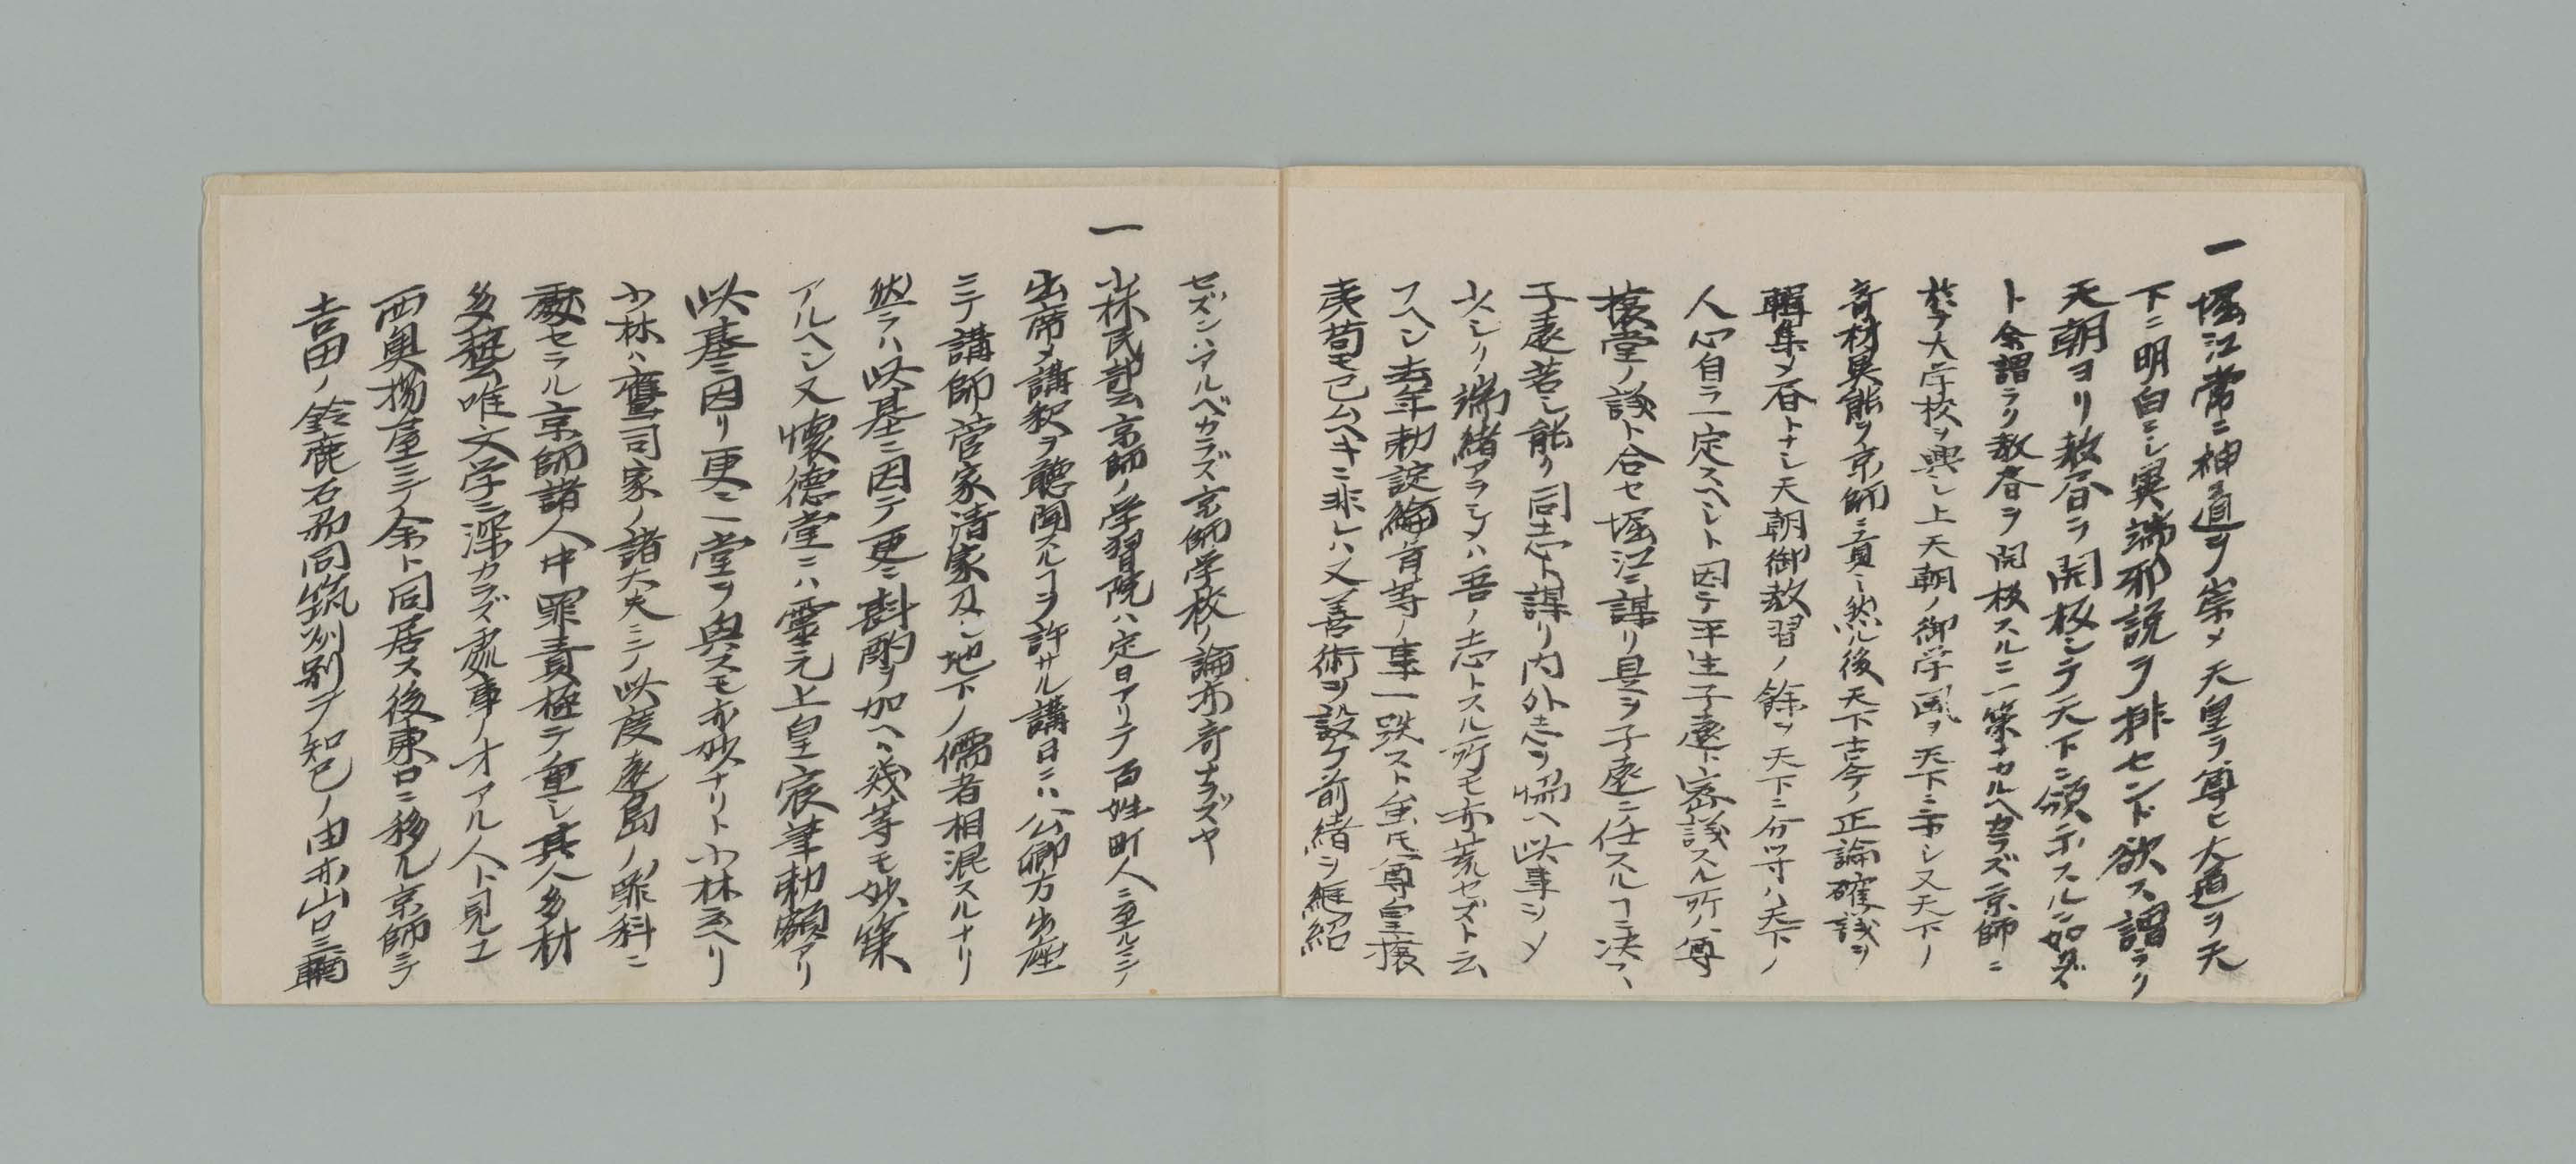 一堀江常ニ神道ヲ崇メ天皇ヲ尊ヒ大道ヲ天
下ニ明白ニシ異端邪説ヲ排セント欲ス謂ラク
天朝ヨリ教書ヲ開板シテ天下ニ頒示スルニ如ズ
ト余謂ラク教書ヲ開板スルニ一策ナカルヘカラズ京師ニ
於テ大学校ヲ興シ上天朝ノ御学風ヲ天下ニ示シ又天下ノ
奇材異能ヲ京師ニ貢シ然ル後天下古今ノ正論確議ヲ
輯集メ書トナシ天朝御教習ノ餘ヲ天下ニ分ツ時ハ天下ノ
人心自ラ一定スヘシト因テ平生子遠ト密議スル所ノ尊
攘堂ノ議ト合セ堀江ニ謀リ是ヲ子遠ニ任スルヿニ決ス、
子遠若シ能ク同志ト謀リ内外志ヲ協ヘ此事ヲメ
少シク端緒アラシメハ吾ノ志トスル所モ亦荒セズト云
フヘシ去年勅諚綸旨等ノ事一跌スト虽𪜈尊皇攘
夷苟モ已ムヘキニ非レハ又善術ヲ設ケ前緒ヲ継紹
セズンハアルベカラズ京師学校ノ論亦奇ナラズヤ
一小林民部云京師ノ学習院ハ定日アリテ百姓町人ニ至ルマテ
出席メ講釈ヲ聴聞スルヿヲ許サル講日ニハ公卿方出座
ニテ講師菅家清家及ヒ地下ノ儒者相混スルナリ
然ラハ此基ニ因テ更ニ斟酌ヲ加ヘハ幾等モ妙策
アルヘシ又懐徳堂ニハ霊元上皇宸筆勅額アリ
此基ニ因リ更ニ一堂ヲ興スモ亦妙ナリト小林云ヘリ
小林ハ鷹司家ノ諸大夫ニテ此度遠島ノ罪科ニ
處セラル京師諸人中罪責極テ重シ其人多材
多藝唯文学ニ深カラズ處事ノ才アル人ト見ユ
西奥揚屋ニテ余ト同居ス後東口ニ移ル京師ニテ
吉田ノ鈴鹿石州同筑州別テ知已ノ由亦山口三輶